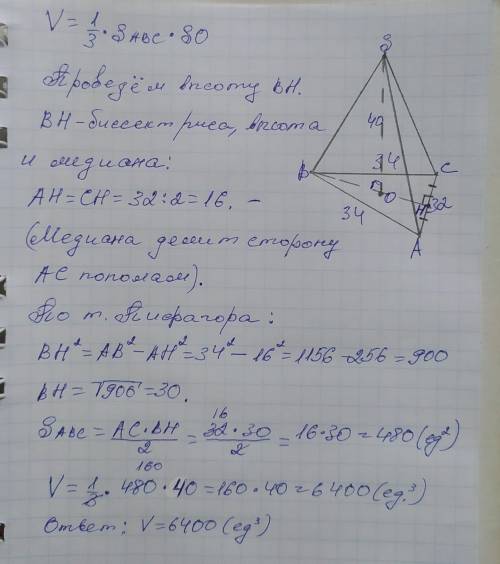 V = 1/3 · SABC · SO
Проведём высоту BH.
BH - биссектриса, высота
и медиана:
AH = CH = 32 : 2 = 16. -
(Медиана делит сторону
AC пополам).
По т. Пифагора:
BH² = AB² - AH² = 34² - 16² = 1156 - 256 = 900
BH = √900 = 30.
SABC = AC · BH / 2 = 32 · 30 / 2 = 16 · 30 = 480 (ед²)
16
160
V = 1/3 · 480 · 40 = 160 · 40 = 6400 (ед.³)
Ответ: V = 6400 (ед³)
S
40
34
B
C
O
H
32
34
A